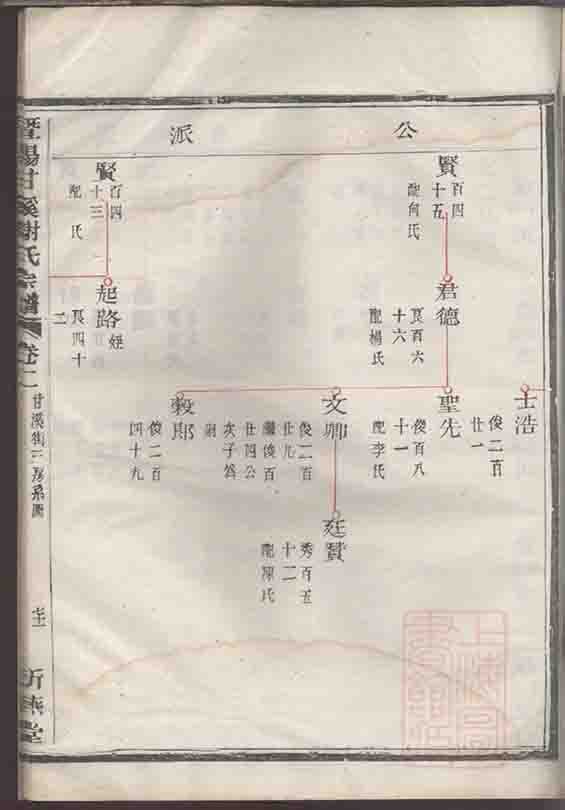 公派
士浩
俊二百
廿一
賢
百四
十五
配何氏
君德
艮百六
十六
配楊氏
聖先
俊百八
十一
配李氏
文卿
俊二百
廿九
繼俊百
廿四公
次子爲
嗣
廷贊
秀百五
十二
配陳氏
穀郎
俊二百
四十九
賢
百四
十三
配 氏
起路
姪
艮四十
二
暨陽甘溪謝氏宗譜
卷二
甘溪街三房系圖